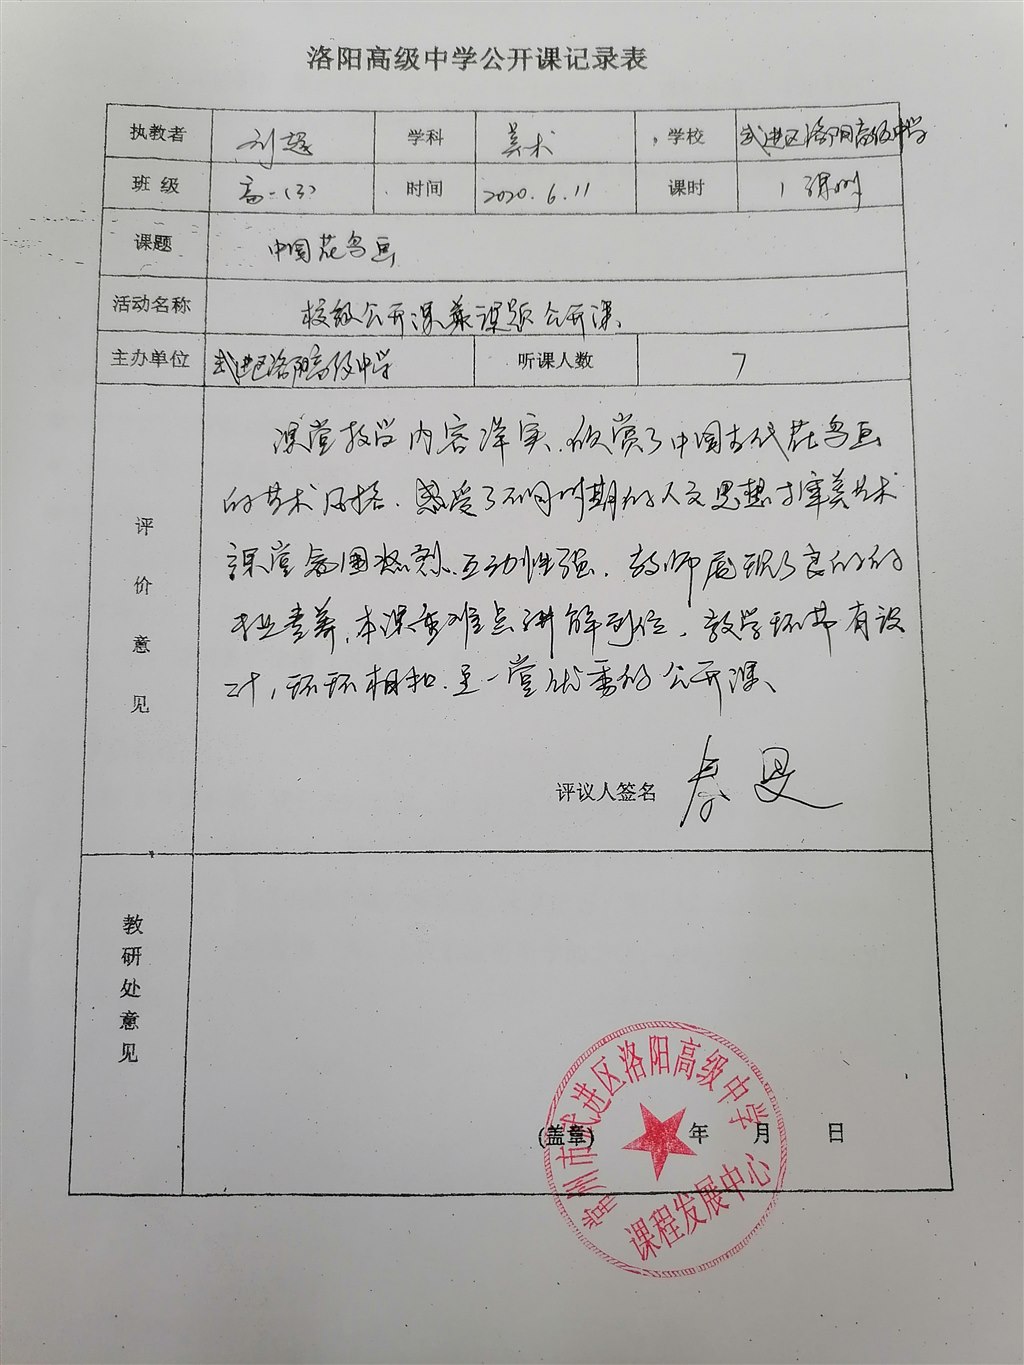 洛阳高级中学公开课记录表
执教者 刘 学科 美术 学校 武进区洛阳高级中学
班级 高一(3) 时间 2020.6.11 课时 1课时
课题 中国花鸟画
活动名称 校级公开课兼课题公开课
主办单位 武进区洛阳高级中学 听课人数 7
评价意见
课堂教学内容详实.欣赏了中国古代花鸟画
的艺术风格.感受了不同时期的人文思想审美艺术
课堂氛围热烈.互动性强.教师展现了良好的
专业素养.本课重难点讲解到位.教学环节有设
计,环环相扣.是一堂优秀的公开课、
评议人签名
教研处意见
(盖章) 年 月 日
常州市武进区洛阳高级中学
课程发展中心